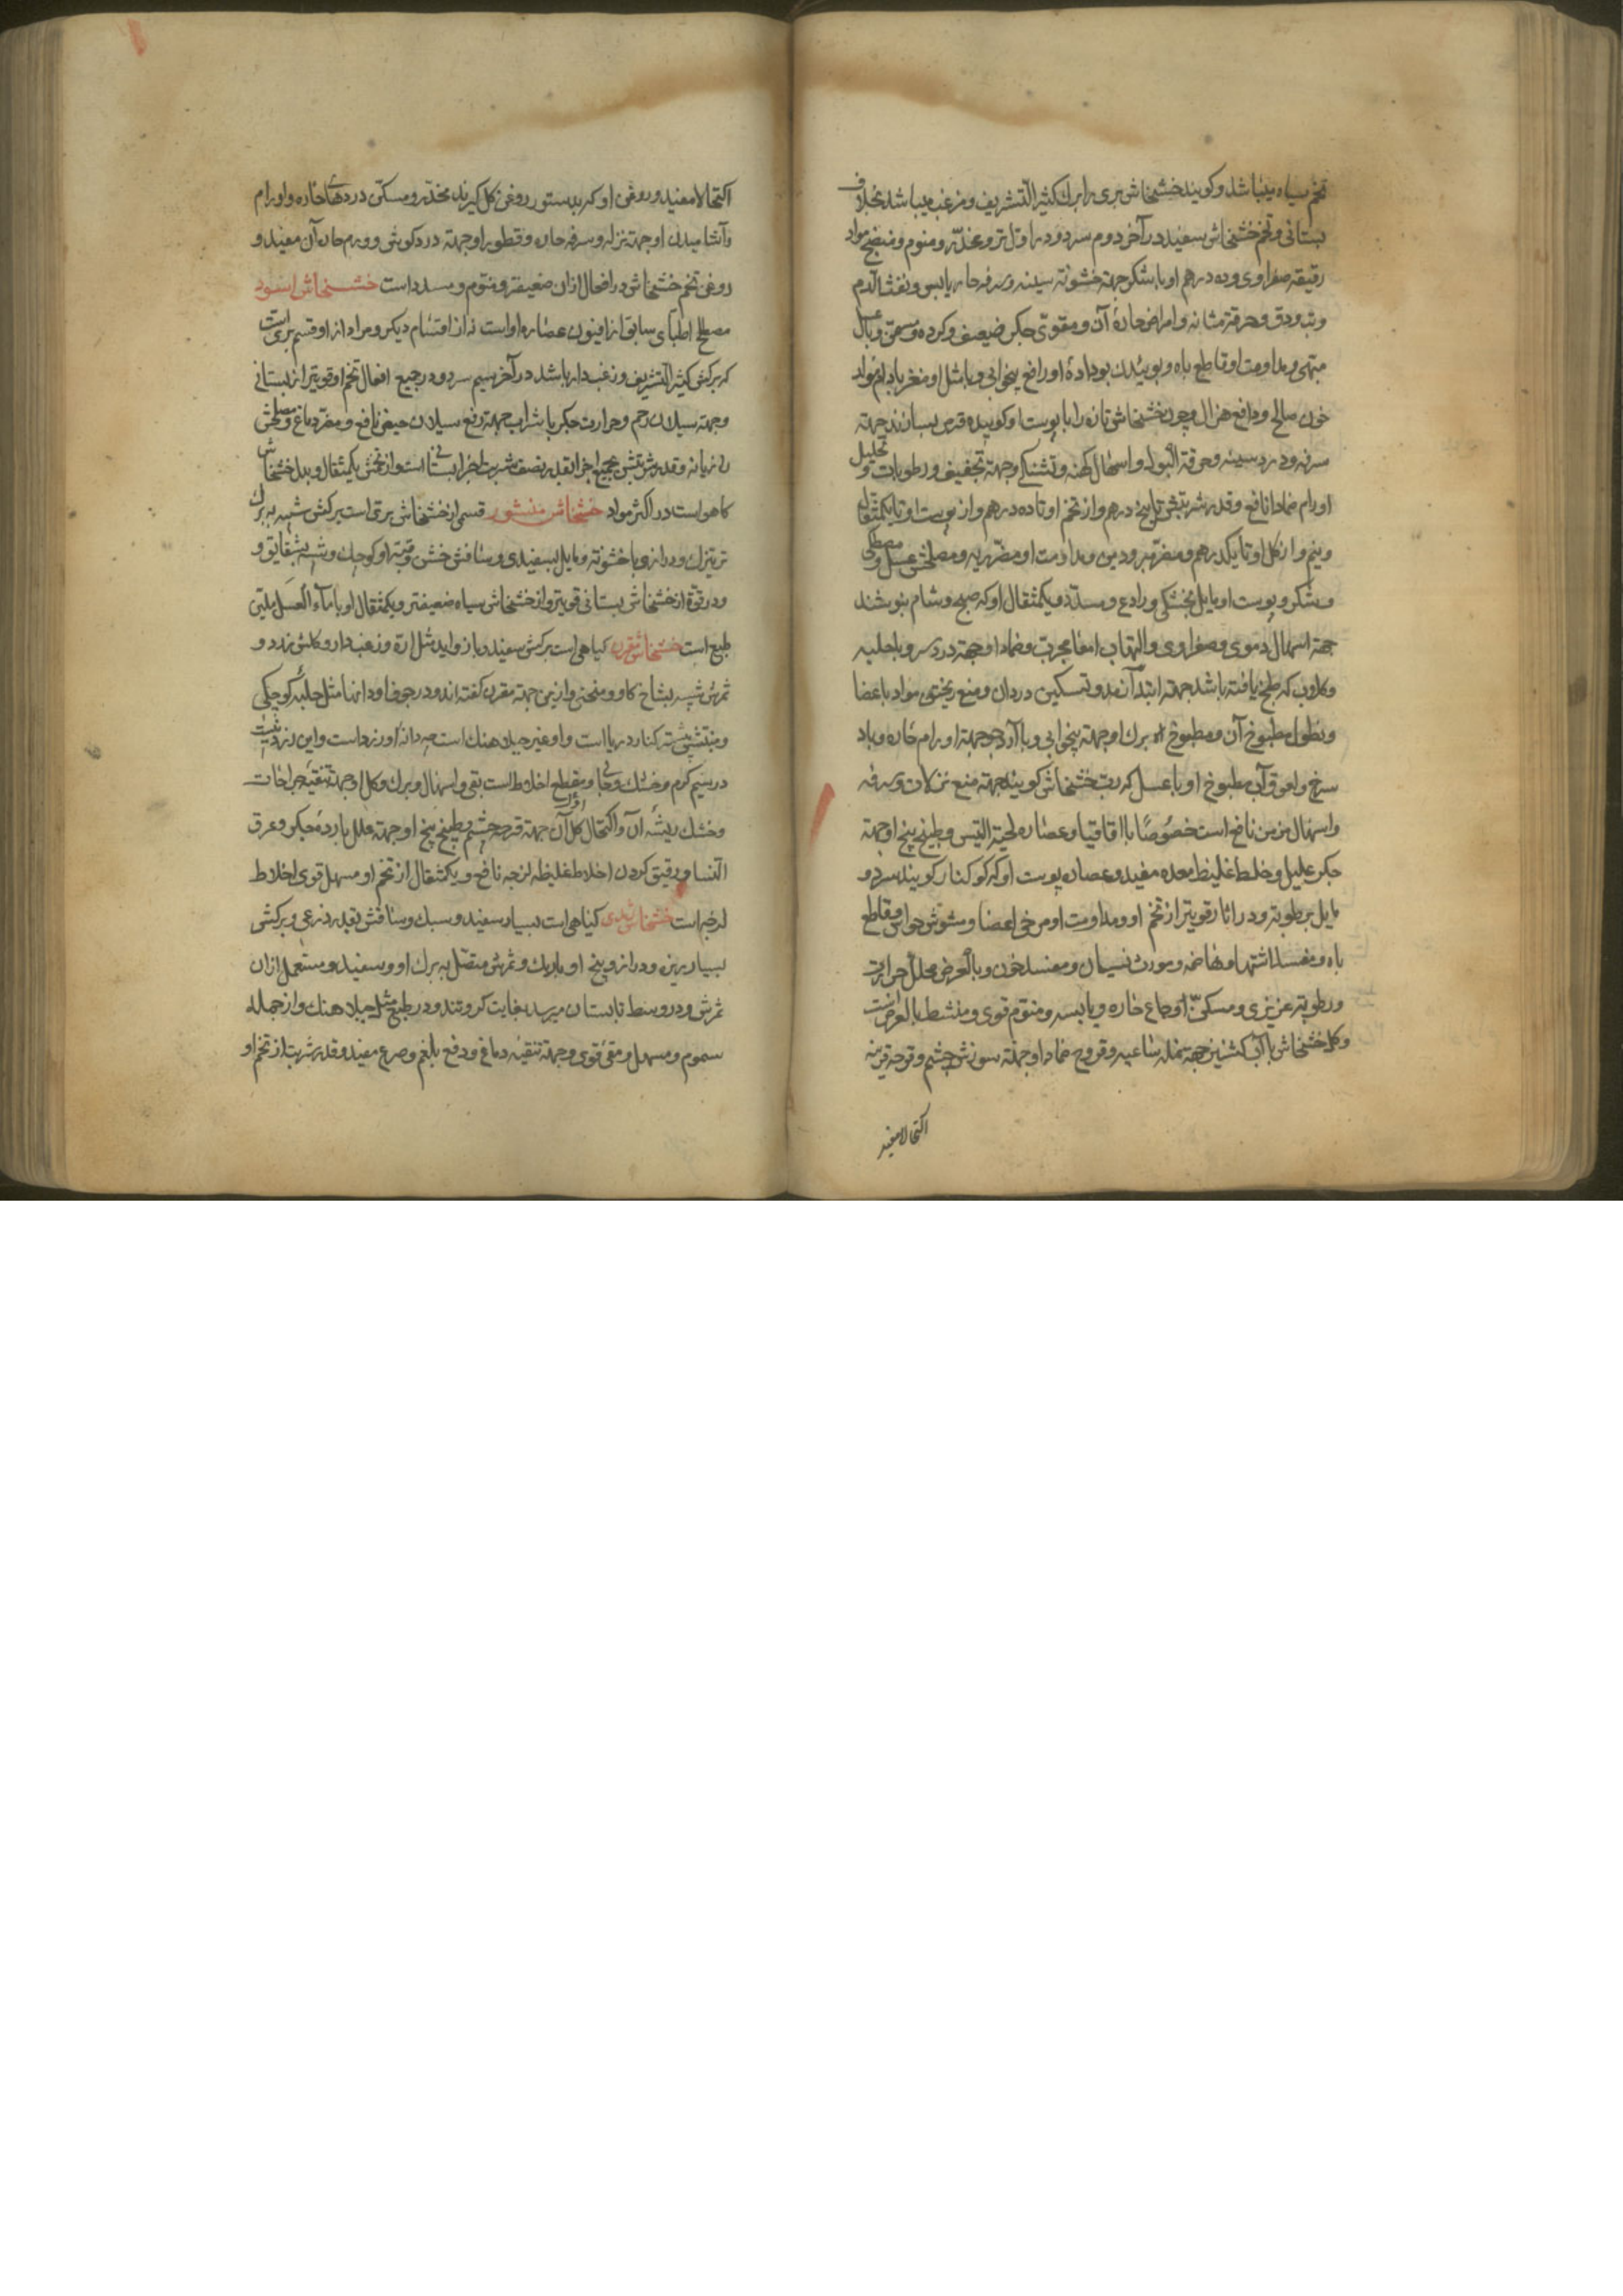 تخم سیاه میباشد و کویند خشخاش بری را برک کثیر التشریف و مزغب میباشد بخلاف
بستانی و تخم خشخاش سفید در آخر دوم سرد و در اول تر و مخدر و منوم و منضج مواد
رقیقه صفراوی و ده درهم او با شکر جهة خشونة سینه و سرفه حار یابس و نفث الدم
و تب دق و حرقة مثانه و امراض حادۀ آن و مقوی جکر ضعیف و کرده و مسمن و با عسل
مبهی و مداومت او قاطع باه و بوئیدن بو دادۀ او رافع بیخوابی و با مثل او مغز بادام مولد
خون صالح و دافع هزال و چون خشخاش تازه را با پوست او کوبیده قرص بسازند جهة
سرفه و درد سینه و حرقة البول و اسهال کهنه و تشنکی و جهة تجفیف رطوبات و تحلیل
اورام ضمادا نافع و قدر شربتش تا پنج درهم و از تخم او تا ده درهم و از پوست او تا یکمثقال
و نیم و از کل او تا یکدرهم و مضر مبرودین و مداومت او مضر ریه و مصلحش عسل و مصطکی
و شکر و پوست او مایل بخشکی و رادع و مسدد و یکمثقال او که صبح و شام بنوشند
جهة اسهال دموی و صفراوی و التهاب امعا مجرب و ضماد او جهة درد سر و با حلبه
و کلاب که طبخ یافته باشد جهة ابتدآء رمد و تسکین درد آن و منع ریختن مواد باعضا
و نطول مطبوخ آن و مطبوخ برک او جهة بیخوابی و با آرد جو جهة اورام حاره و باد
سرخ و لعوق آب مطبوخ او با عسل که رب خشخاش کویند جهة منع نزلات و سرفه
و اسهال مزمن نافع است خصوصًا با اقاقیا و عصاره لحیة التیس و طبیخ بیخ او جهة
جکر علیل و خلط غلیظ معده مفید و عصاره پوست او که کوکنار کویند سرد و
مایل برطوبة و در اثار قویتر از تخم او و مداومت او مرخی اعضا و مشوش حواس و قاطع
باه و مفسد اشتها و هاضمه و مورث نسیان و مفسد خون و بالعرض محلل حرارت
و رطوبة غریزی و مسکن اوجاع حاره و یابسه و منوم قوی و منشط بالعرض است
و کل خشخاش با آب کشنیز جهة نمله ساعیه و قروح ضمادا و جهة سوزش چشم و قرحه قرنیه
اکتحالا مفید
اکتحالا مفید و روغن او که بدستور روغن کل کیرند مخدر و مسکن دردهای حاره و اورام
و آشامیدن او جهة نزله و سرفه حار و قطور او جهة درد کوش و ورم حار آن مفید و
روغن تخم خشخاش در افعال ازان ضعیفتر و منوم و مسدد است خشخاش اسود
مصطلح اطبای سابق از افیون عصاره او است نه از اقسام دیکر و مراد از او قسم بری است
که برکش کثیر التشریف و زغب دار باشد در آخر سیم سرد و در جمیع افعال تخم او قویتر از بستانی
و جهة سیلان رحم و حرارت جکر با شراب جهة رفع سیلان حیض نافع و مضر دماغ و مصلحش
رازیانه و قدر شربتش بجمیع اجزا بقدر نصف شربت اجزا بستانی است و از تخمش یکمثقال و بدلش خشخاش
کاهو است در اکثر مواد خشخاش منثور قسمی از خشخاش بری است برکش شبیه ببرک
ترتیزک و درازی با خشونة و مایل بسفیدی و ساقش خشن و قبه او کوچک و شبیه بشقایق و
در قوة از خشخاش بستانی قویتر و از خشخاش سیاه ضعیفتر و یکمثقال او با مآء العسل ملین
طبع است خشخاش مقرن کیاهی است برکش سفید و با زواید مثل ارة و زغب دار و کلش زرد و
ثمرش شبیه بشاخ کاو و منحنی و ازین جهة مقرن کفته اند و در جوف او دانها مثل حلبه کوچکی
و منبتش بیشتر کنار دریا است و او غیر جبلاهنک است چه دانۀ او زرد است و این
در سیم کرم و خشک و جالی و مقطع اخلاط است بقی و اسهال و برک و کل او جهة تنقیۀ جراحات
و خشک ریشه آن و اکتحال کل آن جهة قرحه چشم و طبیخ بیخ او جهة علل بارده جکر و عرق
النسا و رقیق کردن اخلاط غلیظه لزجه نافع و یکمثقال از تخم او مسهل قوی اخلاط
لزجه است خشخاش زبدی کیاهی است بسیار سفید و سبک و ساقش بقدر ذرعی و برکش
بسیار ریزه و دراز و بیخ او باریک و ثمرش متصل به برک او و سفید و مستعمل ازان
ثمرش و در وسط تابستان میرسد بغایت کرم و تند و در طبع مثل جبلاهنک و از جمله
سموم و مسهل و مقی قوی و جهة تنقیه دماغ و دفع بلغم و صرع مفید و قدر شربت از تخم او